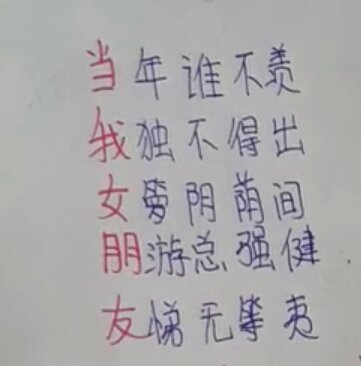 当年谁不羡
我独不得出
女旁阴荫间
朋游总强健
友悌无